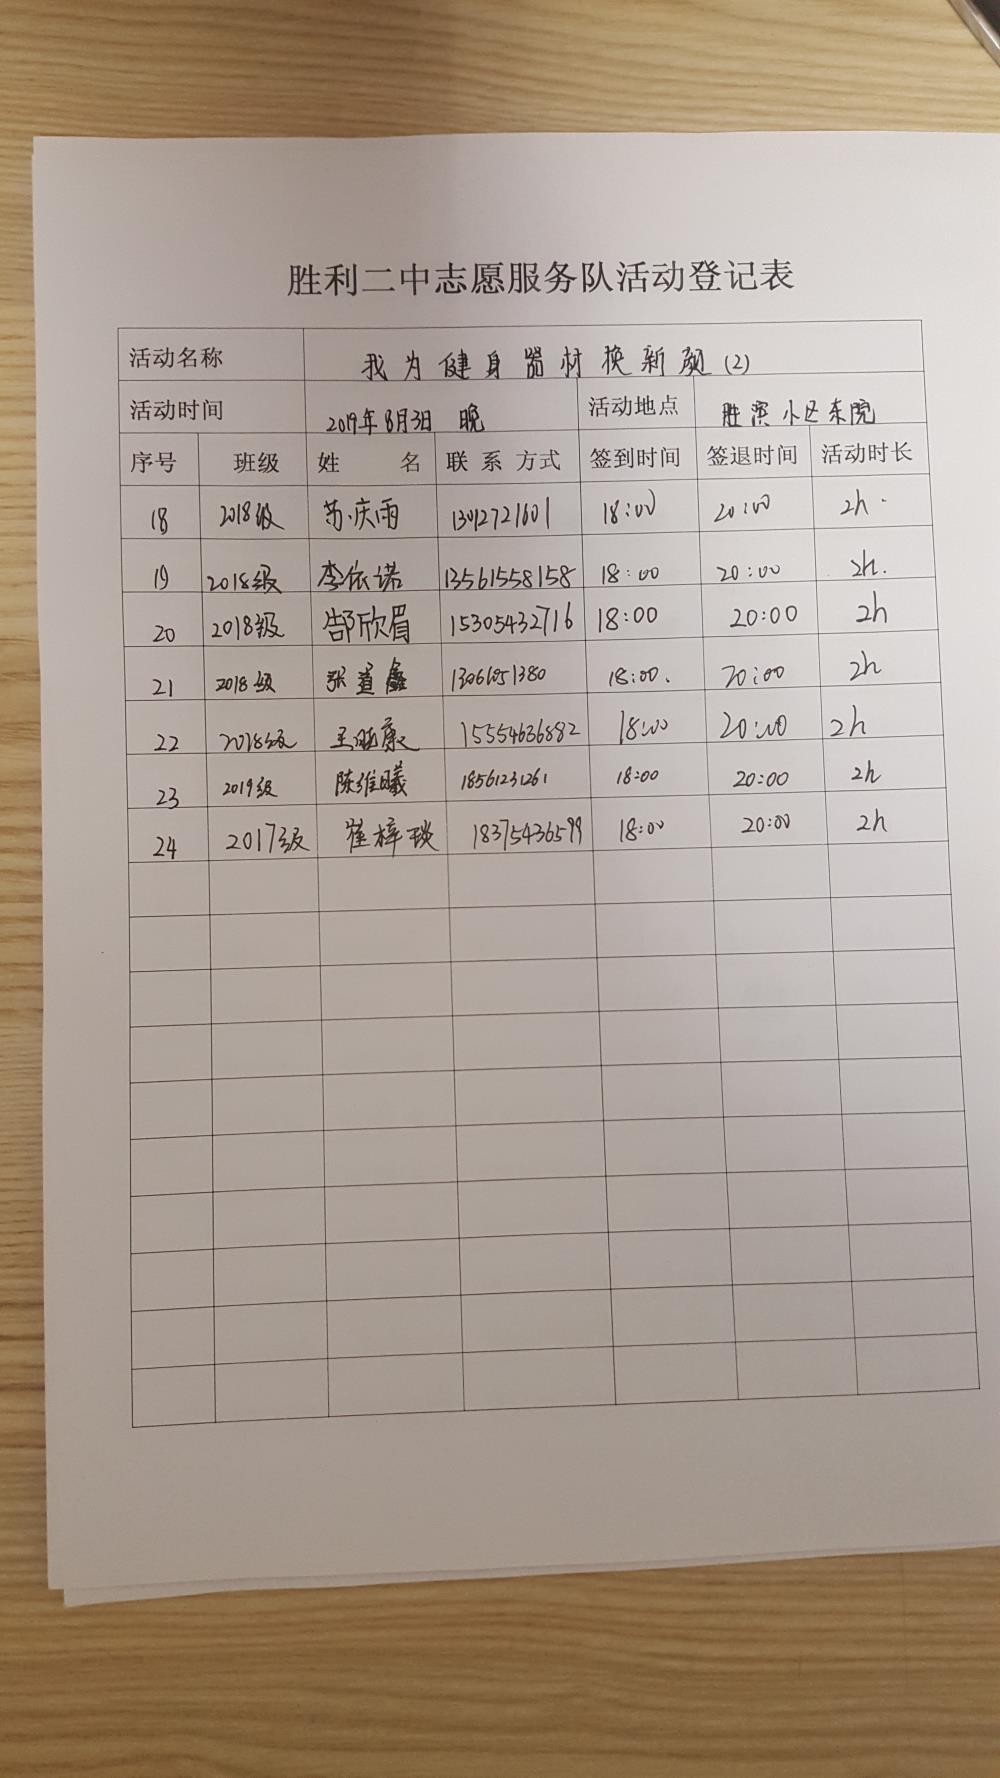 胜利二中志愿服务队活动登记表
活动名称 我为健身器材换新颜(2)
活动时间 2019年8月3日 晚 活动地点 胜滨小区东院
序号 班级 姓 名 联 系 方式 签到时间 签退时间 活动时长
18 2018级 苏庆雨 13012721601 18:00 20:00 2h.
19 2018级 李依诺 13561558158 18:00 20:00 2h.
20 2018级 郜欣眉 15305432716 18:00 20:00 2h
21 2018级 张道鑫 13066051380 18:00. 20:00 2h
22 2018级 15554636882 18:00 20:00 2h
23 2019级 陈维曦 18561231261 18:00 20:00 2h
24 2017级 崔梓琰 18375436599 18:00 20:00 2h